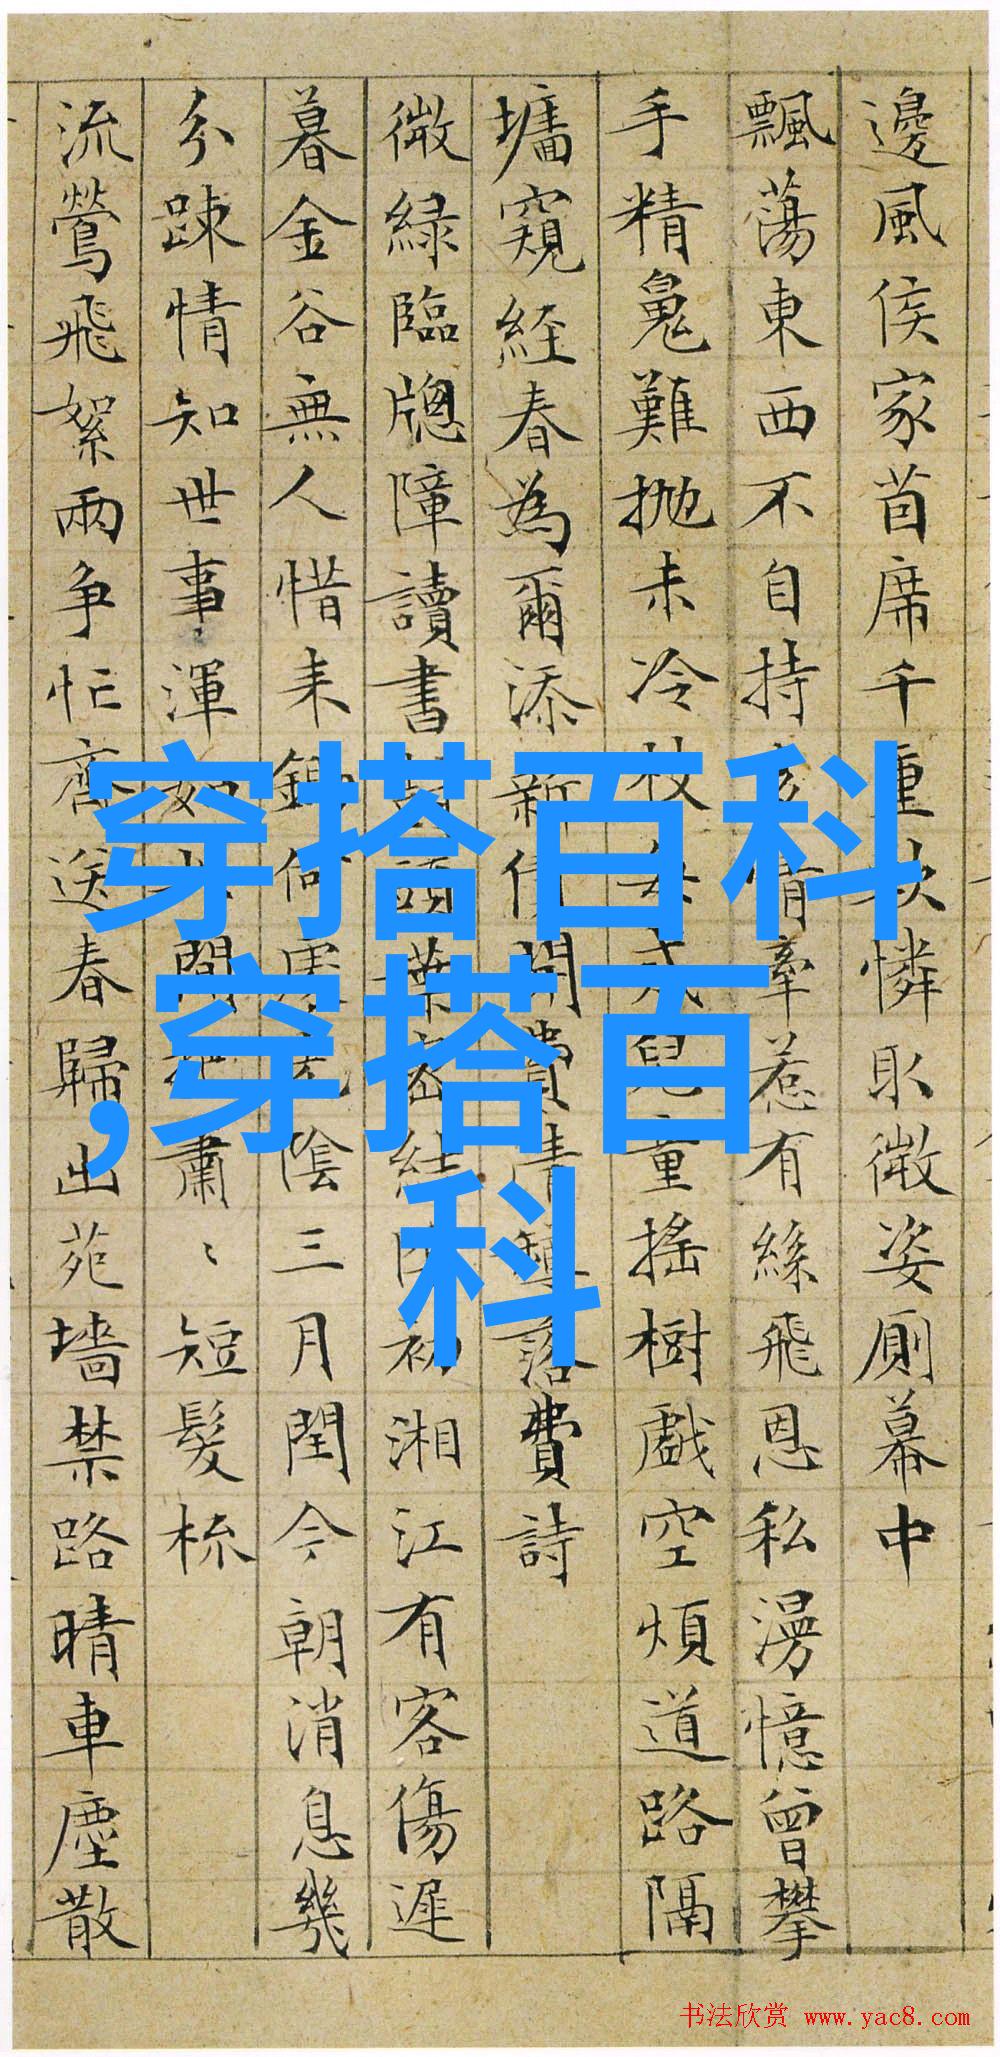 邊風侯家茵席千重軟憐取微姿廁幕中
飄蕩東西不自持 情牽惹有絲飛恩私漫憶曾攀
手精魂難拋未冷枝 兒童搖樹戲空煩道路隔
墉窺經春為爾添新 閒費 落費詩
微綠臨牕障讀書 葉密結 初湘江有客傷遲
暮金谷無人惜来 何 陰三月閏今朝消息幾
分踈情知世事渾如 間 肅、短髮梳
流鶯飛絮兩争忙齊送春歸出苑墻禁路晴車塵散
穿搭百科
,穿搭百
科
书法欣赏 www.yac8.com